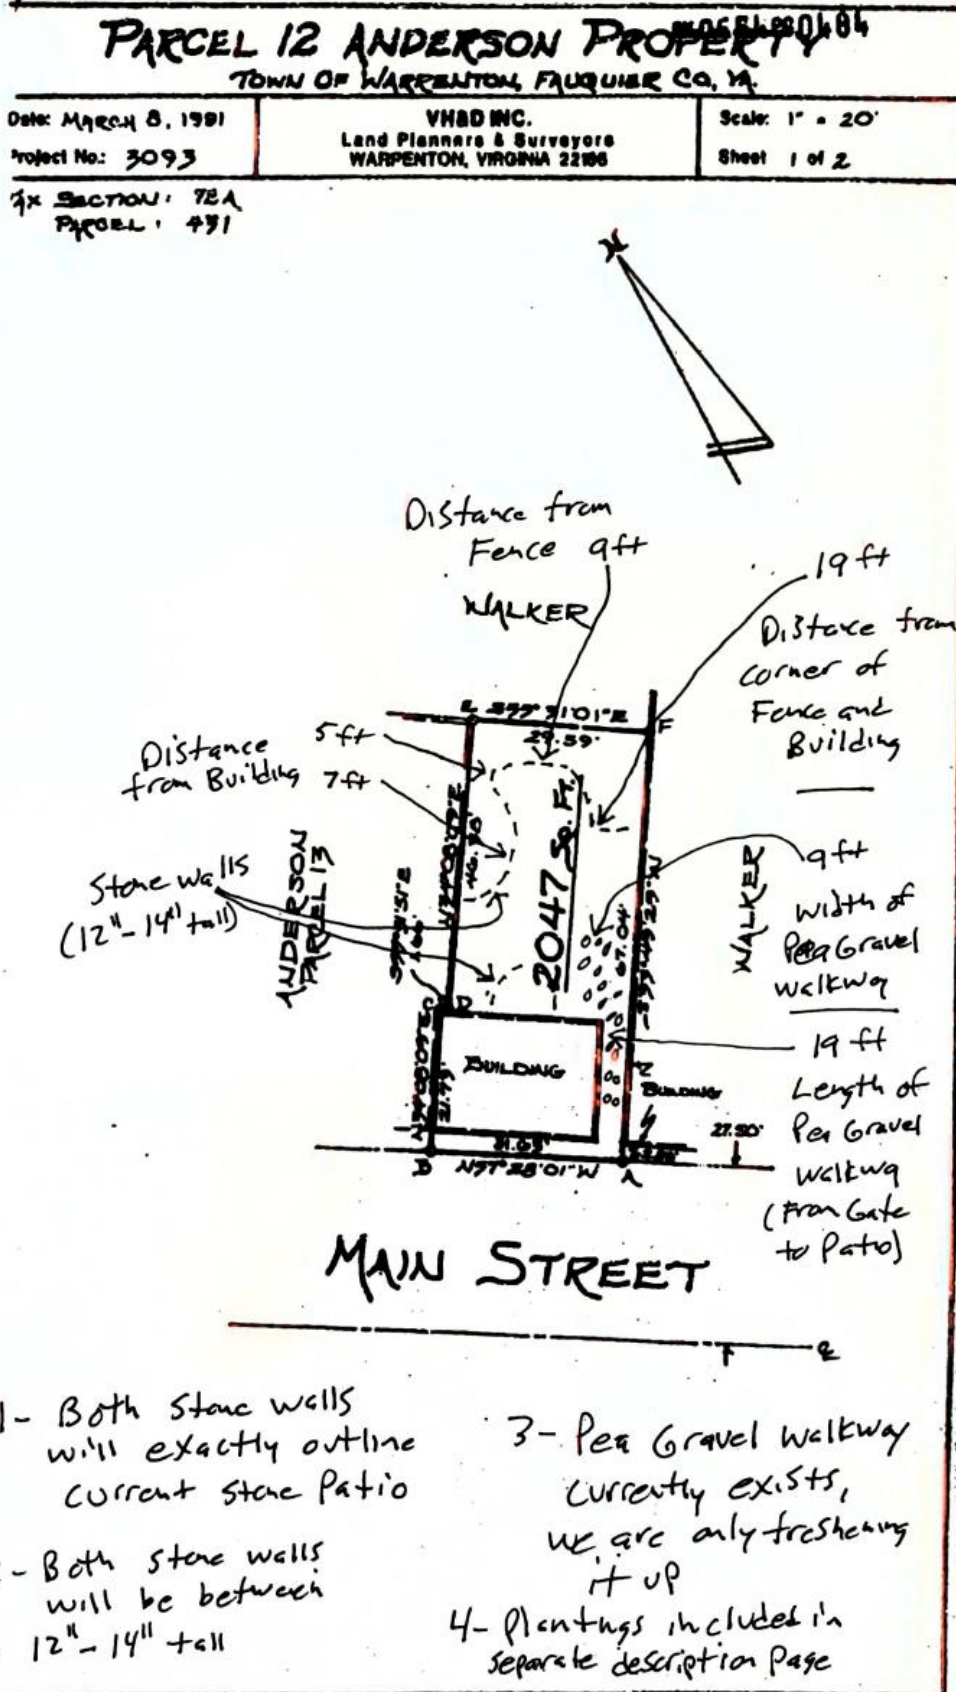 PARCEL 12 ANDERSON PROPERTY
TOWN OF WARRENTON, FAUQUIER CO, VA.
Date: MARCH 8, 1991
Project No.: 3093
VH&D INC.
Land Planners & Surveyors
WARPENTON, VIRGINIA 22186
Scale: 1" = 20'
Sheet 1 of 2
SECTION: 72A
PARCEL: 431
N
Distance from
Fence 9ft
WALKER
19 ft
Distance from
corner of
Fence and
Building
E
S77° 31'01"E
F
29.59'
Distance
from Building
5ft
7ft
N34°08'09"E
2047 SQ. FT.
67.04'
Stone walls
(12"-14" tall)
ANDERSON
PARCEL 13
WALKER
9ft
width of
Pea Gravel
walkway
19 ft
Length of
Pea Gravel
walkwa
(From Gate
to Patio)
C
D
N34°08'09"E
21.99'
BUILDING
BUILDING
27.50'
31.65'
B
N57°28'01"W
A
MAIN STREET
1- Both stone walls
will exactly outline
current stone Patio
- Both stone walls
will be between
12"-14" tall
3- Pea Gravel walkway
currently exists,
we are only freshening
it up
4- Plantings included in
separate description Page